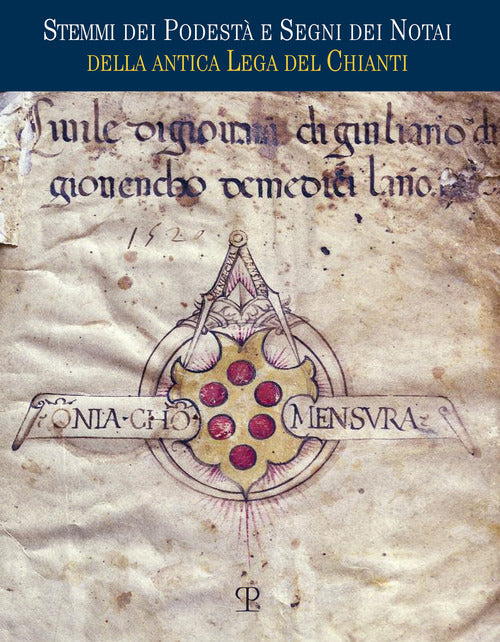 STEMMI DEI PODESTÀ E SEGNI DEI NOTAI
DELLA ANTICA LEGA DEL CHIANTI
Ciuile digiouani di giuliano di
giouencho demedici lano.
ONIA · CHŌ MENSVRA